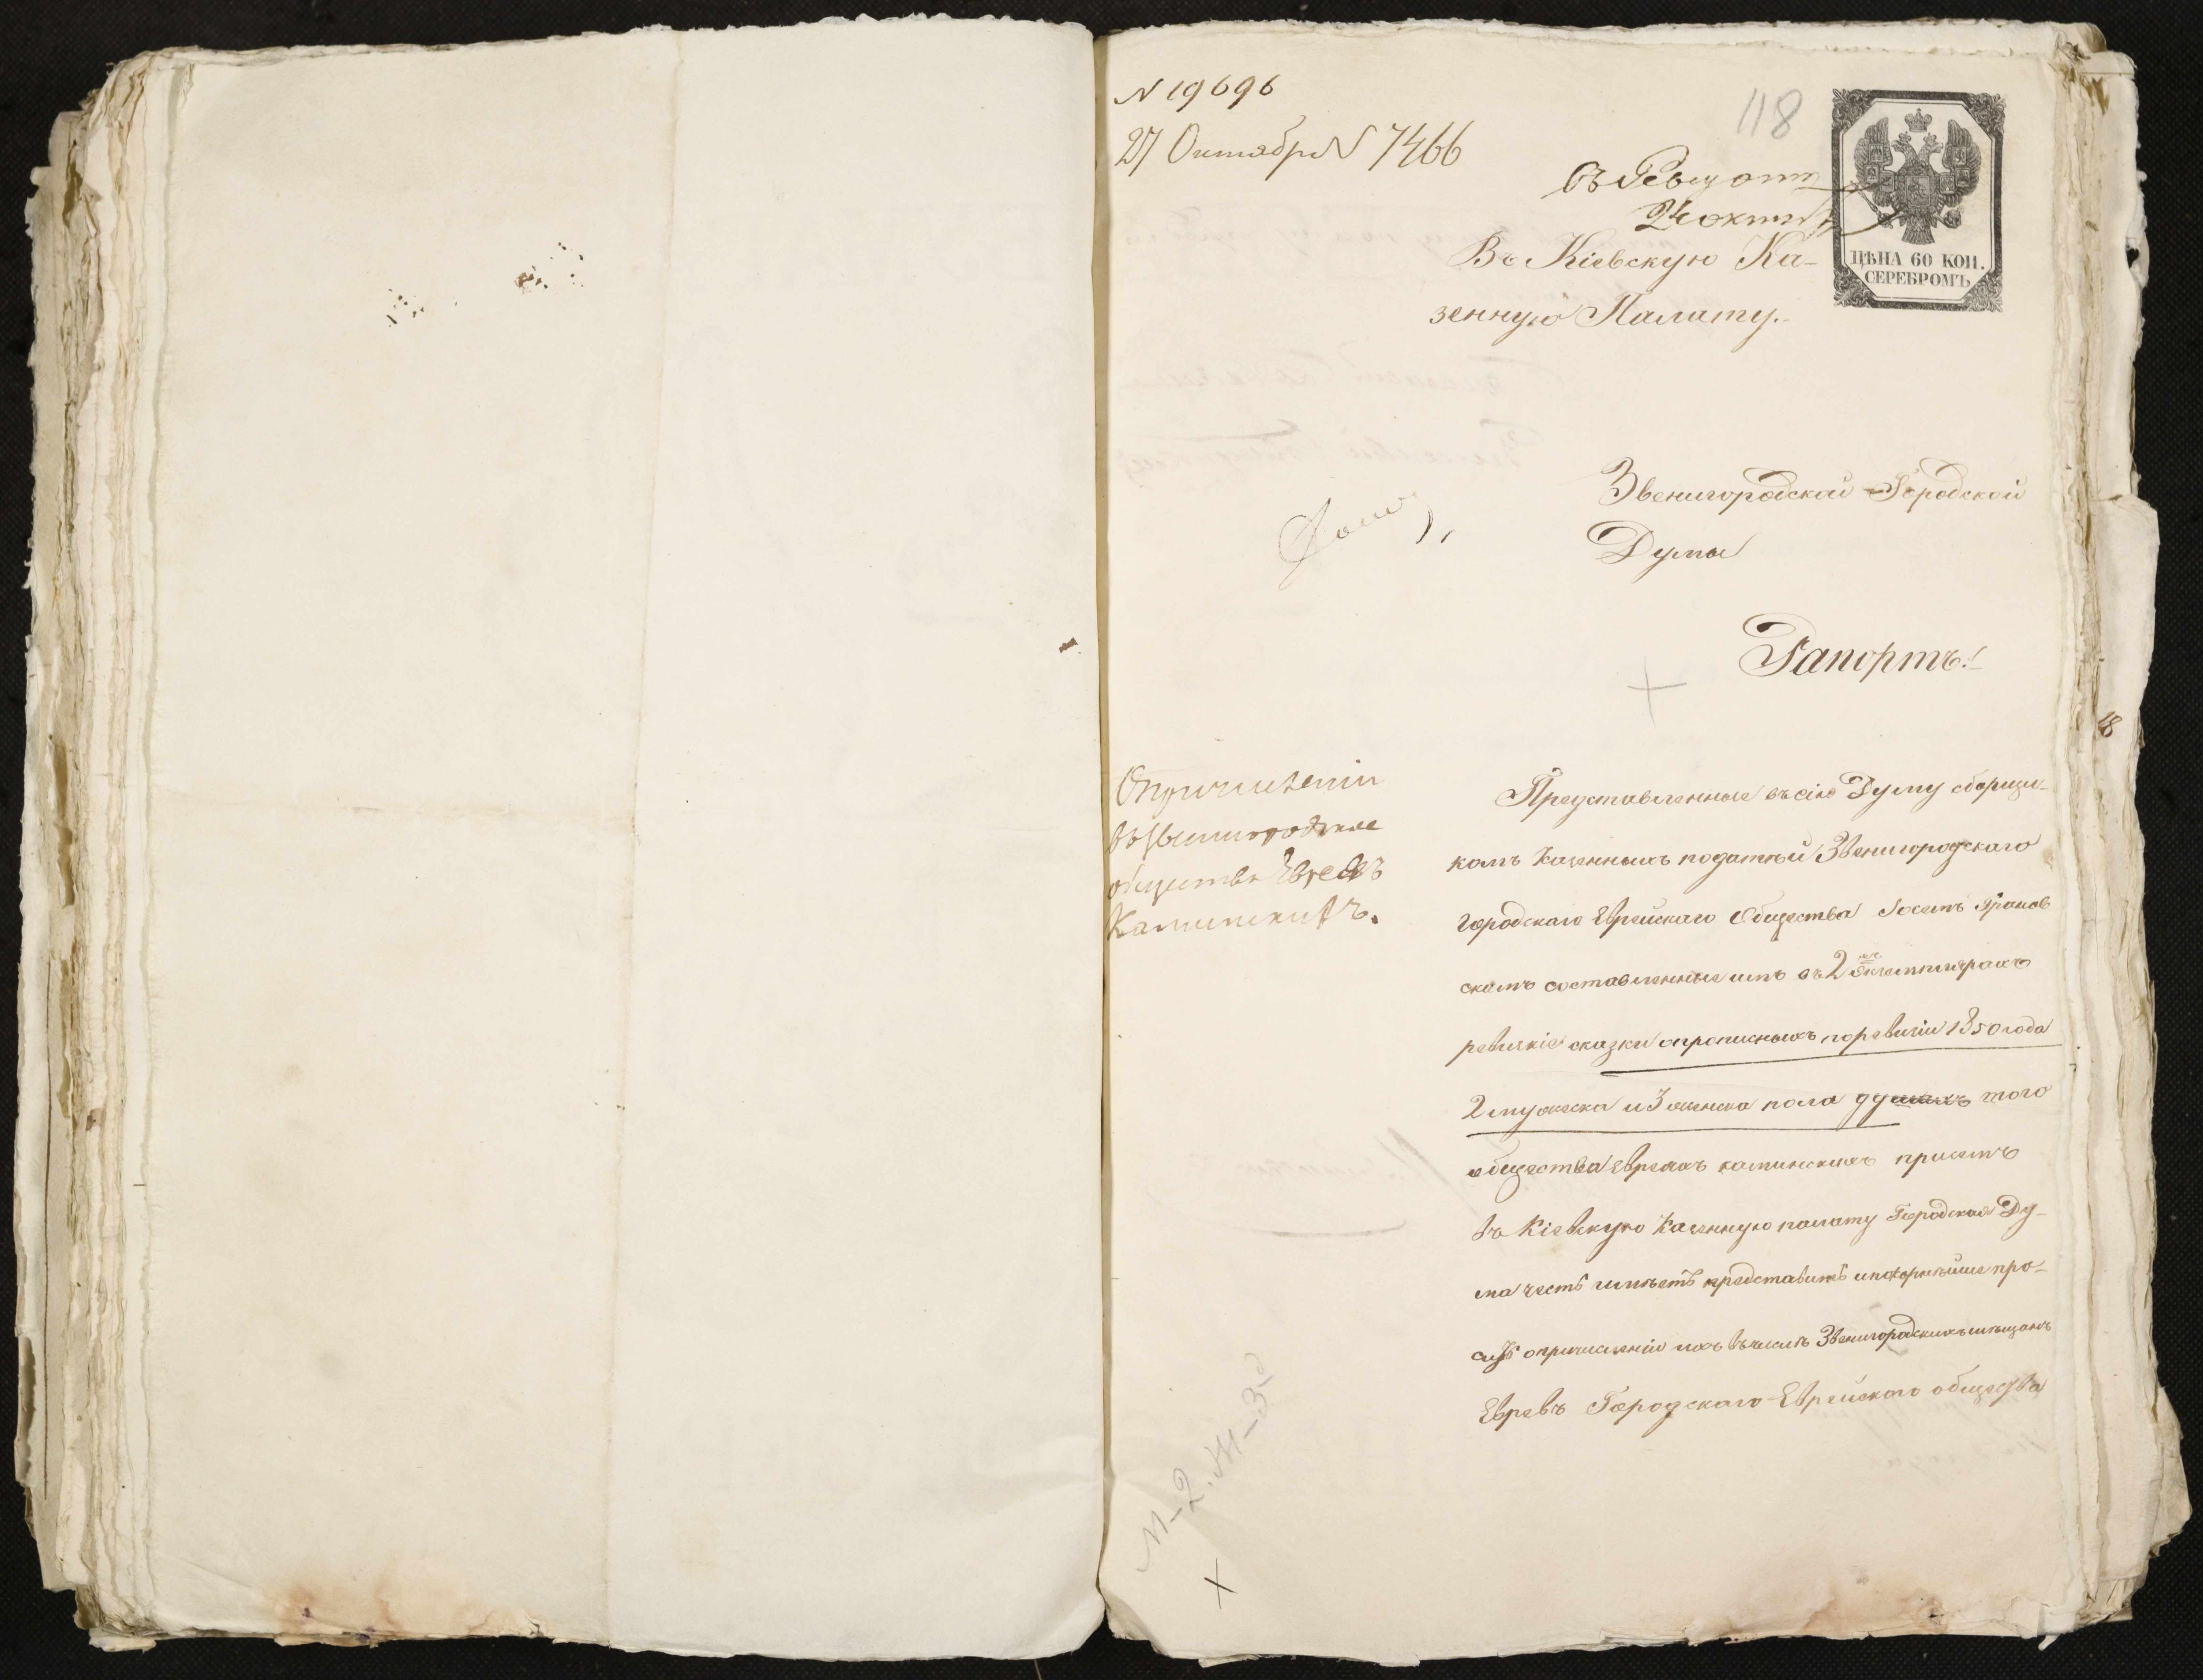 N 19696
118
27 Октября N 7466
24 октяб
Въ Кіевскую Ка-
зенную Палату.
ЦѢНА 60 КОП.
СЕРЕБРОМЪ
Звенигородской Городской
Думы
Рапортъ!
О причисленіи
въ Звенигородское
общество Евреевъ
Каминскихъ.
Представленные въ сію Думу сборщи-
комъ казенныхъ податей Звенигородскаго
Городскаго Еврейскаго Общества Іосемъ Гранов
скимъ составленные имъ въ 2хъ экземплярахъ
ревизкіе сказки о прописныхъ по ревизіи 1850 года
2 мужеска и 3 женска пола душахъ того
общества евреяхъ каминскихъ при семъ
въ Кіевскую Казенную палату Городская Ду-
ма честь имѣетъ представить и покорнѣйше про-
ситъ о причисленіи ихъ въ число Звенигородскихъ мѣщанъ
Евреевъ Городскаго Еврейскаго общества
М-2. Ж-3.
18